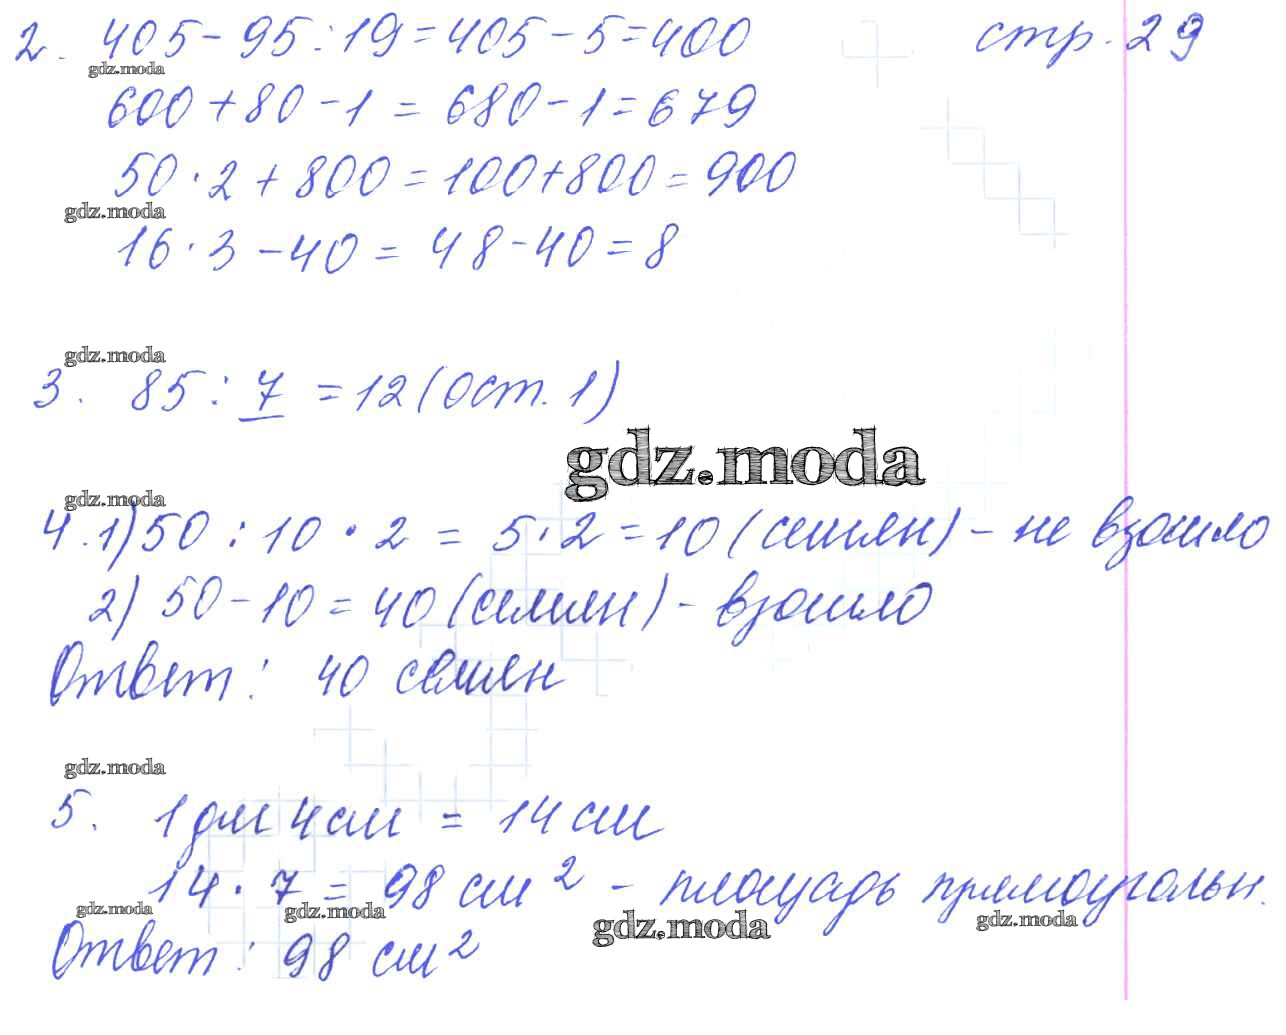 2. 405 - 95 : 19 = 405 - 5 = 400 стр. 29
gdz.moda
600 + 80 - 1 = 680 - 1 = 679
50 · 2 + 800 = 100 + 800 = 900
gdz.moda
16 · 3 - 40 = 48 - 40 = 8
gdz.moda
3. 85 : 7 = 12 (ост. 1)
gdz.moda
gdz.moda
4. 1) 50 : 10 · 2 = 5 · 2 = 10 (семян) - не взошло
2) 50 - 10 = 40 (семян) - взошло
Ответ: 40 семян
gdz.moda
5. 1 дм 4 см = 14 см
14 · 7 = 98 см² - площадь прямоугольн.
gdz.moda gdz.moda gdz.moda gdz.moda
Ответ: 98 см²